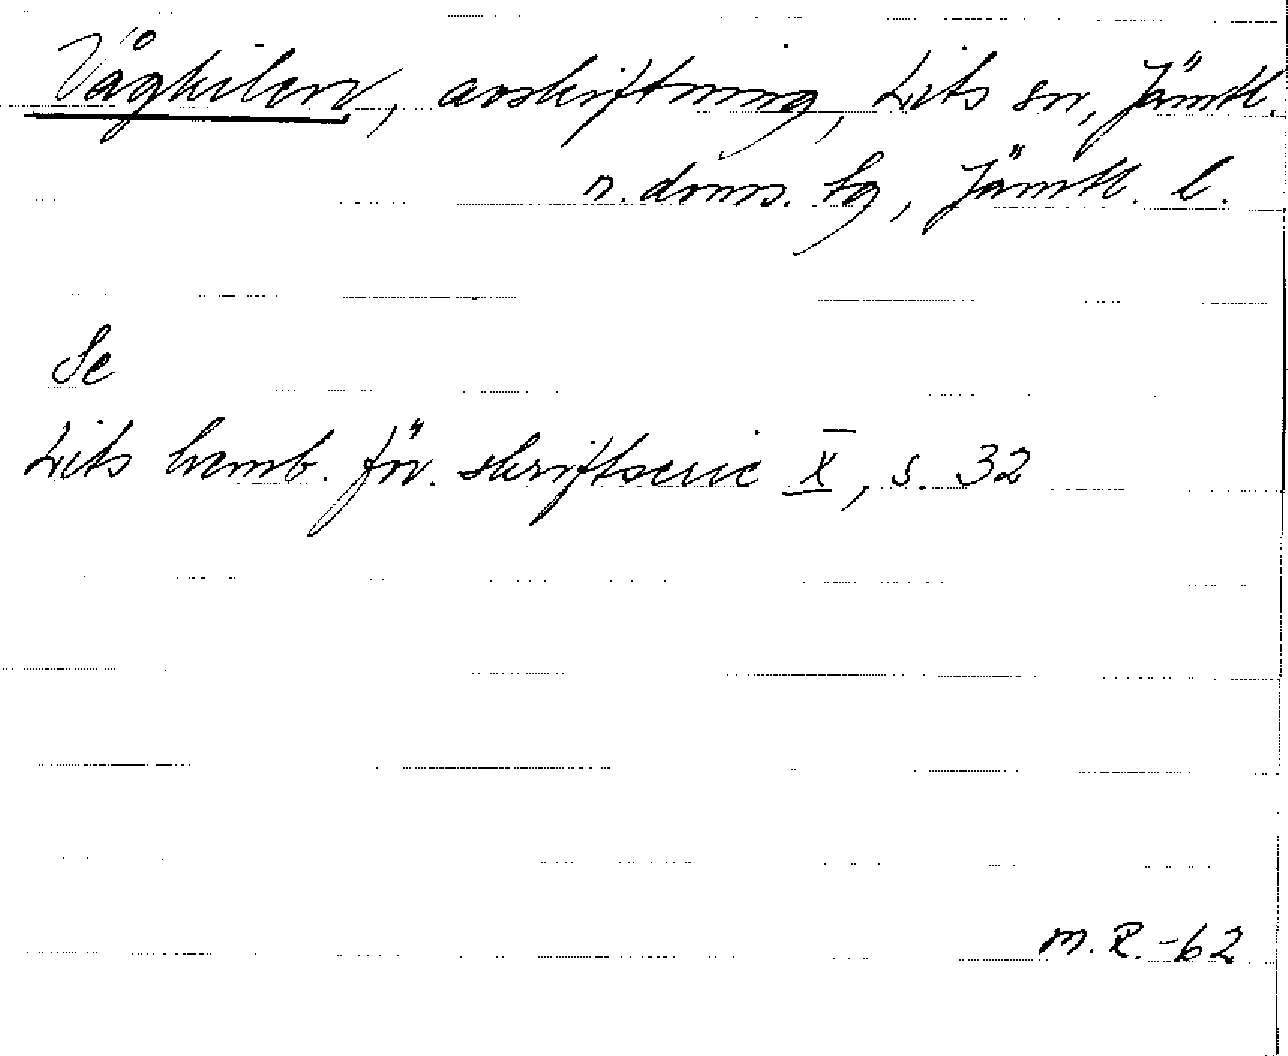 Vågkilen, avskriftning, Lits sn, Jämtl.
n. doms. tg, Jämtl. l.
Se
Lits hemb. för. skriftserie X, s. 32
M.R.-62